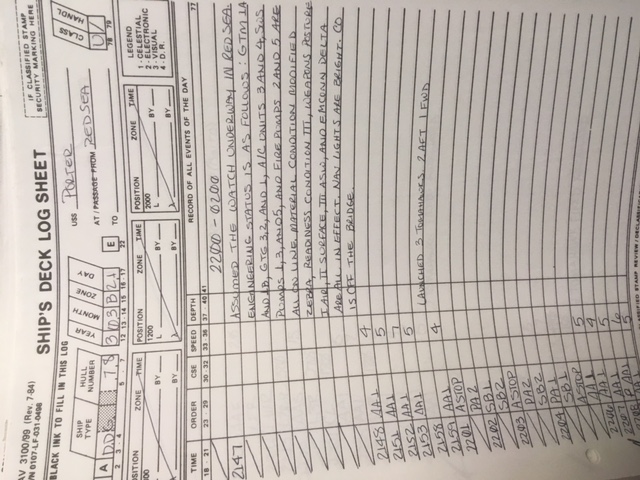 AV 3100/99 (Rev. 7-84)
/N 0107-LF-031-0498
SHIP'S DECK LOG SHEET
IF CLASSIFIED STAMP
SECURITY MARKING HERE
BLACK INK TO FILL IN THIS LOG
USS PORTER
AT / PASSAGE FROM RED SEA
TO
SHIP TYPE HULL NUMBER YEAR MONTH ZONE DAY CLASS HANDL
A DDG 78 303B21 E U
2 3 - 4 5 - 7 12 13-14 15 16-17 22 78 79
POSITION ZONE TIME POSITION ZONE TIME POSITION ZONE TIME
1200 2000
L BY L BY
BY BY BY
LEGEND
1 - CELESTIAL
2 - ELECTRONIC
3 - VISUAL
4 - D.R.
TIME ORDER CSE SPEED DEPTH RECORD OF ALL EVENTS OF THE DAY
18 - 21 23 - 29 30 - 32 33-36 37 - 40 41 77
2200 - 0200
2147 ASSUMED THE WATCH UNDERWAY IN RED SEA.
ENGINEERING STATUS IS AS FOLLOWS: GTM 1A
AND 1B, GTG 3,2, AND 1, A/C UNITS 3 AND 4, SWS
PUMPS 1, 3, AND 5, AND FIRE PUMPS 2 AND 5 ARE
ALL ON LINE. MATERIAL CONDITION MODIFIED
ZEBRA, READINESS CONDITION III, WEAPONS POSTURE
I AIR, II SURFACE, III ASW, AND EMCONN DELTA
ARE ALL IN EFFECT. NAV LIGHTS ARE BRIGHT. CO
IS OFF THE BRIDGE.
4
2148 AA1 5
2151 AA1 7
2152 AA1 5
2153 AA1
LAUNCHED 3 TOMAHAWKS. 2 AFT 1 FWD
2158 4
2159 AA1
2201 ASTOP
PA2
2202 SB1
SB2
2203 ASTOP
PA2
SB2
2204 PA1
SB1
ASTOP 5
AA1 4
2206 AA1 5
2207 AA1 6
AA1 5
CLASSIFIED STAMP REVIEW / DECLASSIFICA